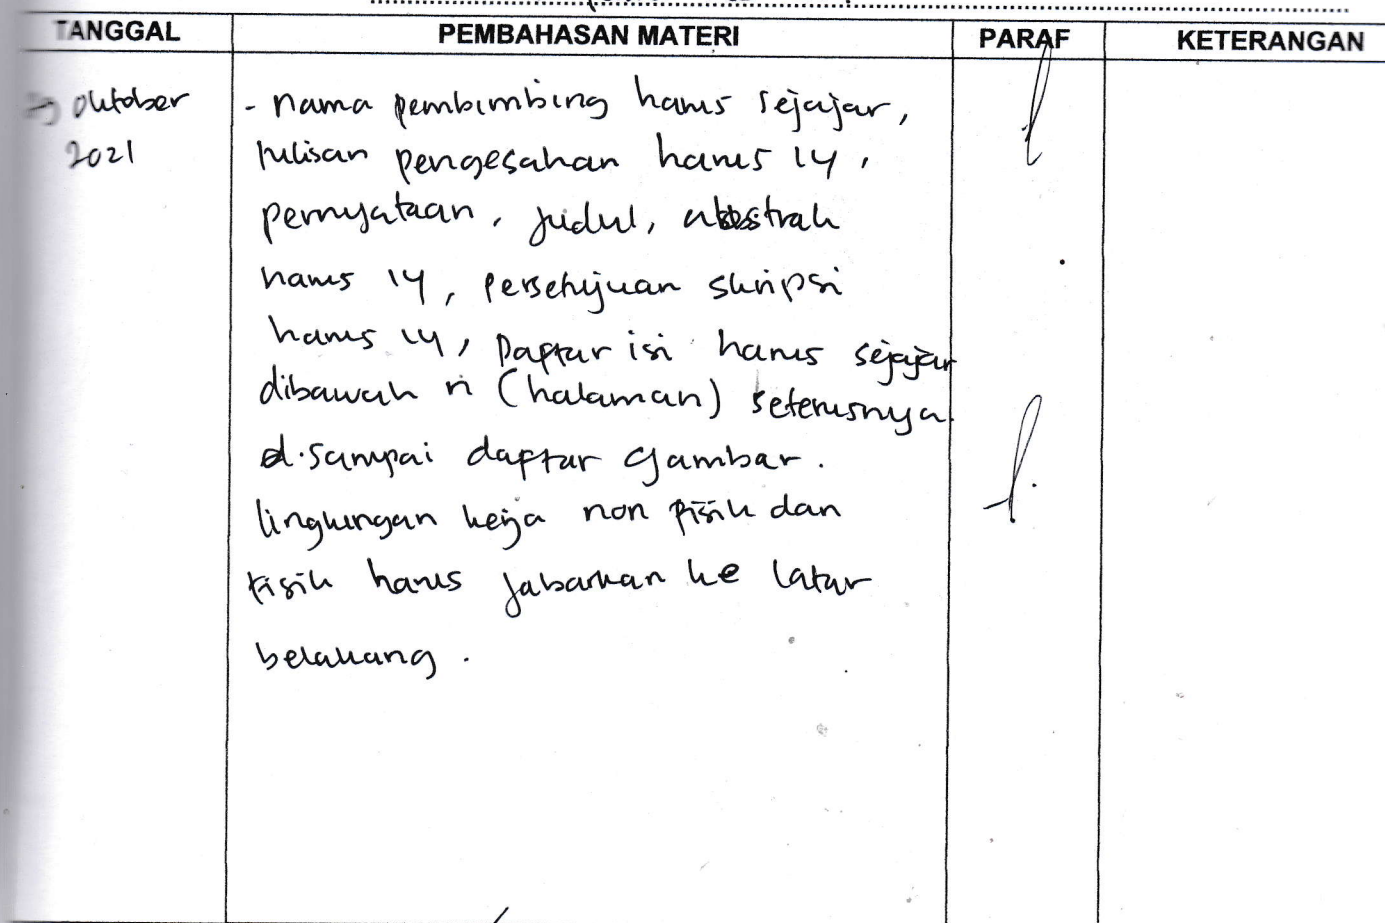 TANGGAL PEMBAHASAN MATERI PARAF KETERANGAN
Oktober - nama pembimbing harus sejajar,
2021 tulisan pengesahan harus 14,
pernyataan, judul, abstrak
harus 14, persetujuan skripsi
harus 14, Daftar isi harus sejajar
dibawah n (halaman) seterusnya
d. sampai daftar gambar.
lingkungan kerja non fisik dan
fisik harus jabarkan ke latar
belakang.